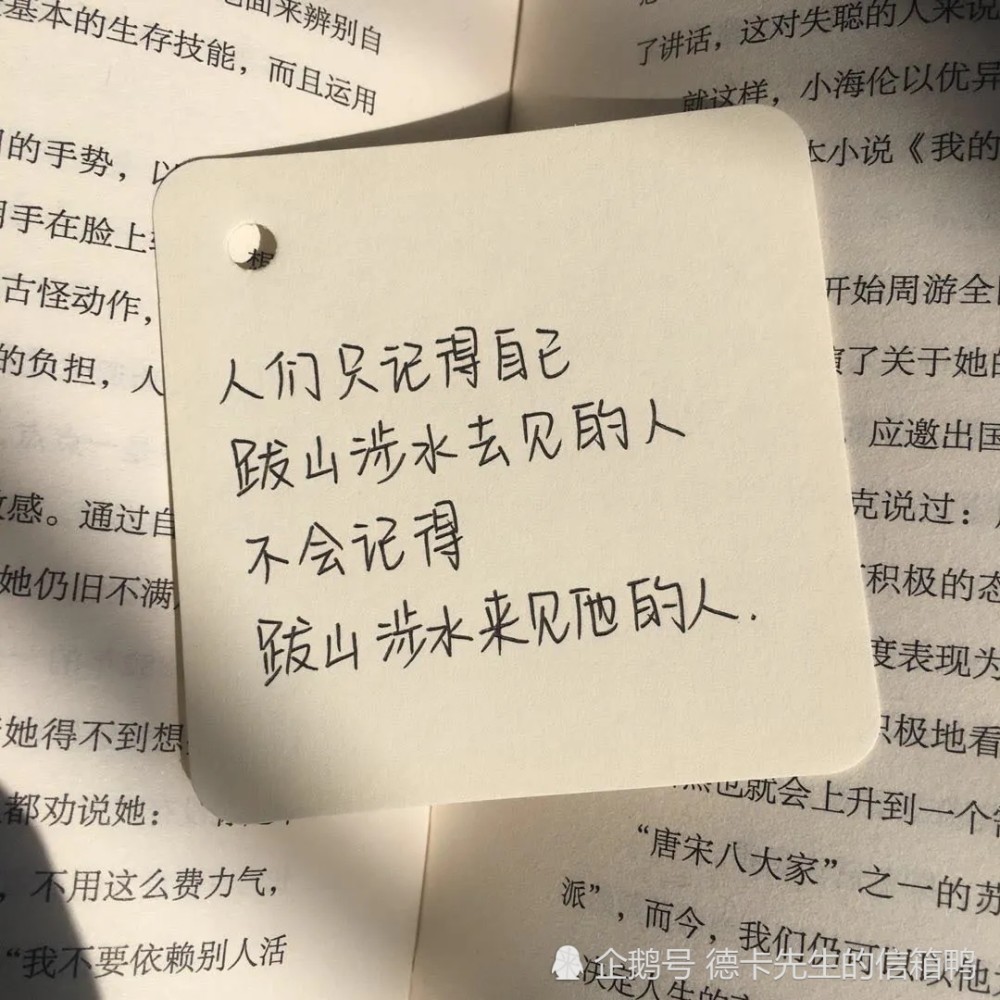 面来辨别自
基本的生存技能，而且运用
的手势，以
手在脸上
古怪动作，
的负担，人
感。通过自
她仍旧不满
她得不到想
都劝说她：
，不用这么费力气，
“我不要依赖别人活
了讲话，这对失聪的人来说
就这样，小海伦以优异
小说《我的
开始周游全
了关于她的
应邀出国
克说过：
积极的态
度表现为
积极地看
也就会上升到一个
“唐宋八大家”之一的苏
派”，而今，我们仍可以从他
决定人生的
人们只记得自己
跋山涉水去见的人
不会记得
跋山涉水来见他的人.
企鹅号 德卡先生的信箱鸭